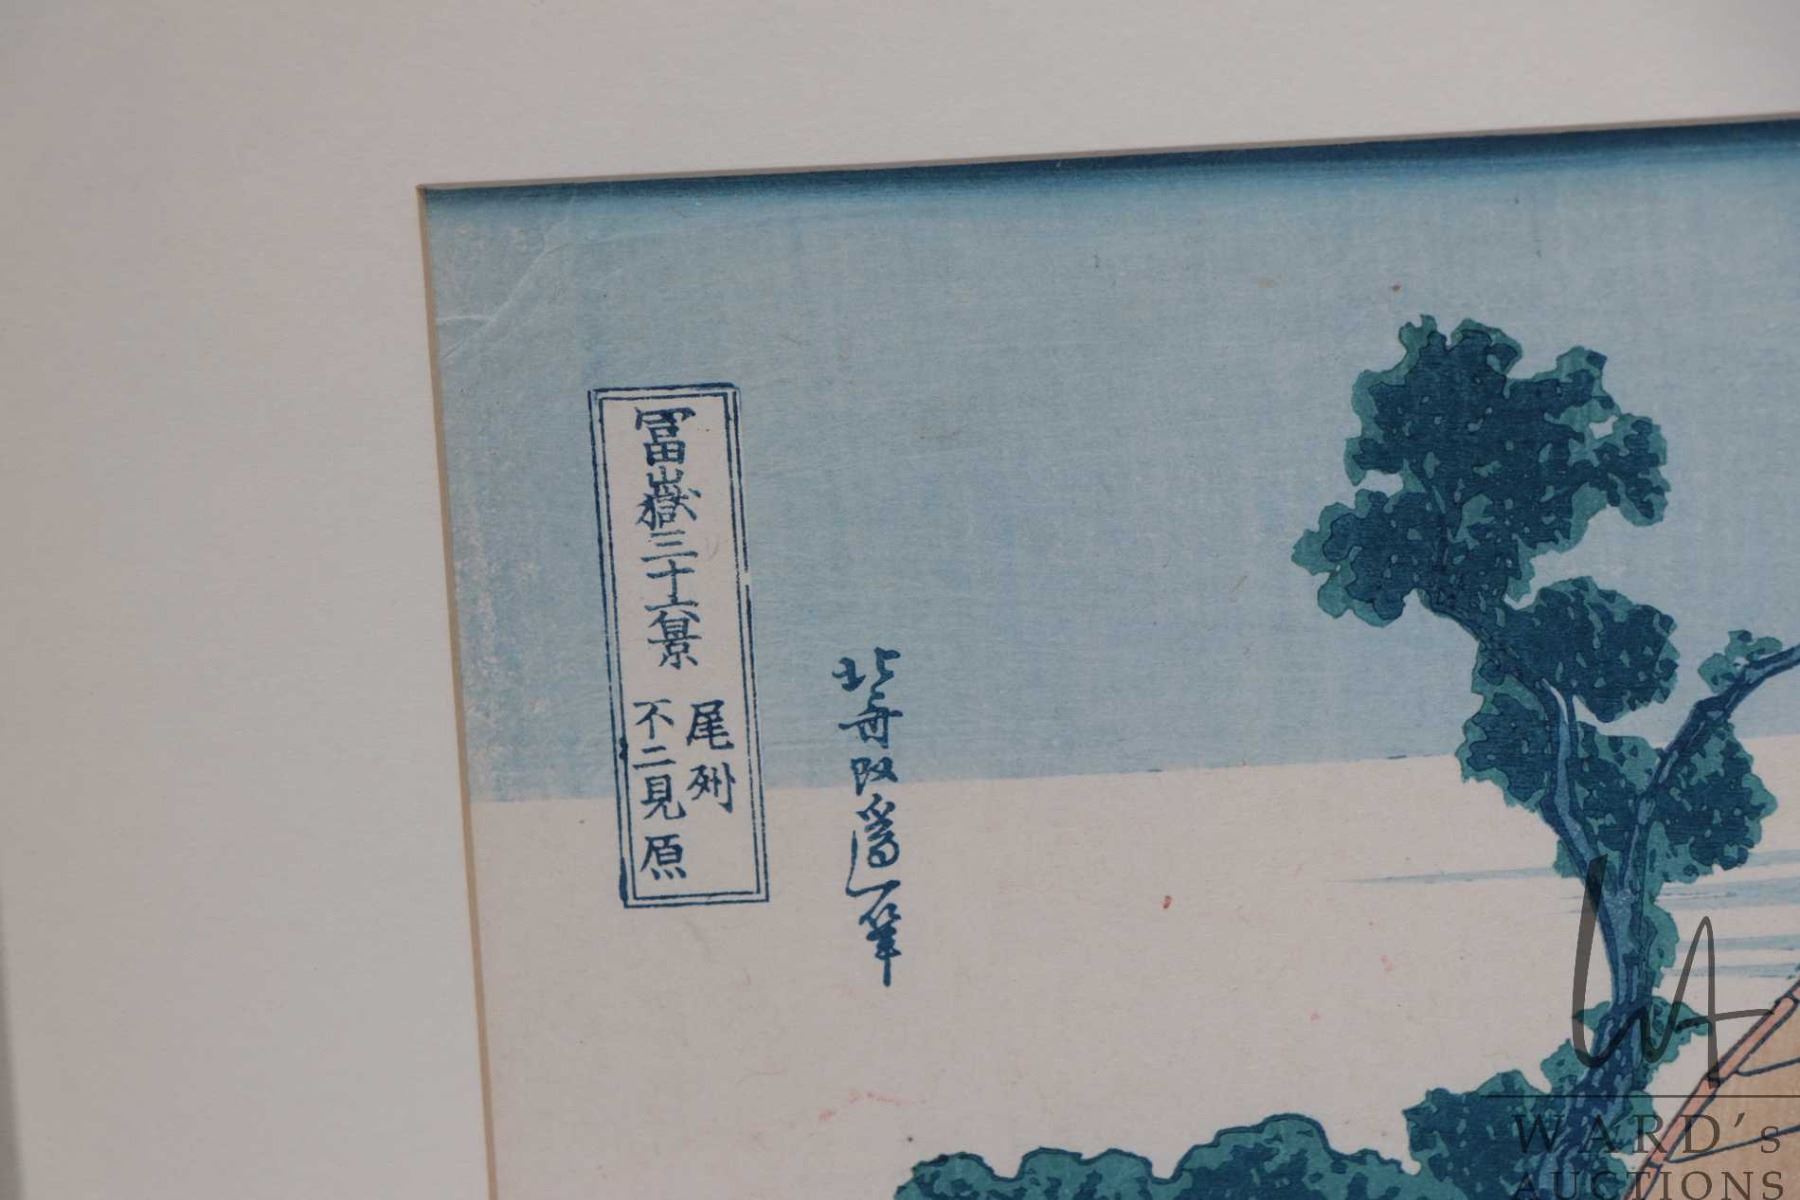 冨嶽三十六景
尾州
不二見原
北斎改為一筆
WARD's
AUCTIONS